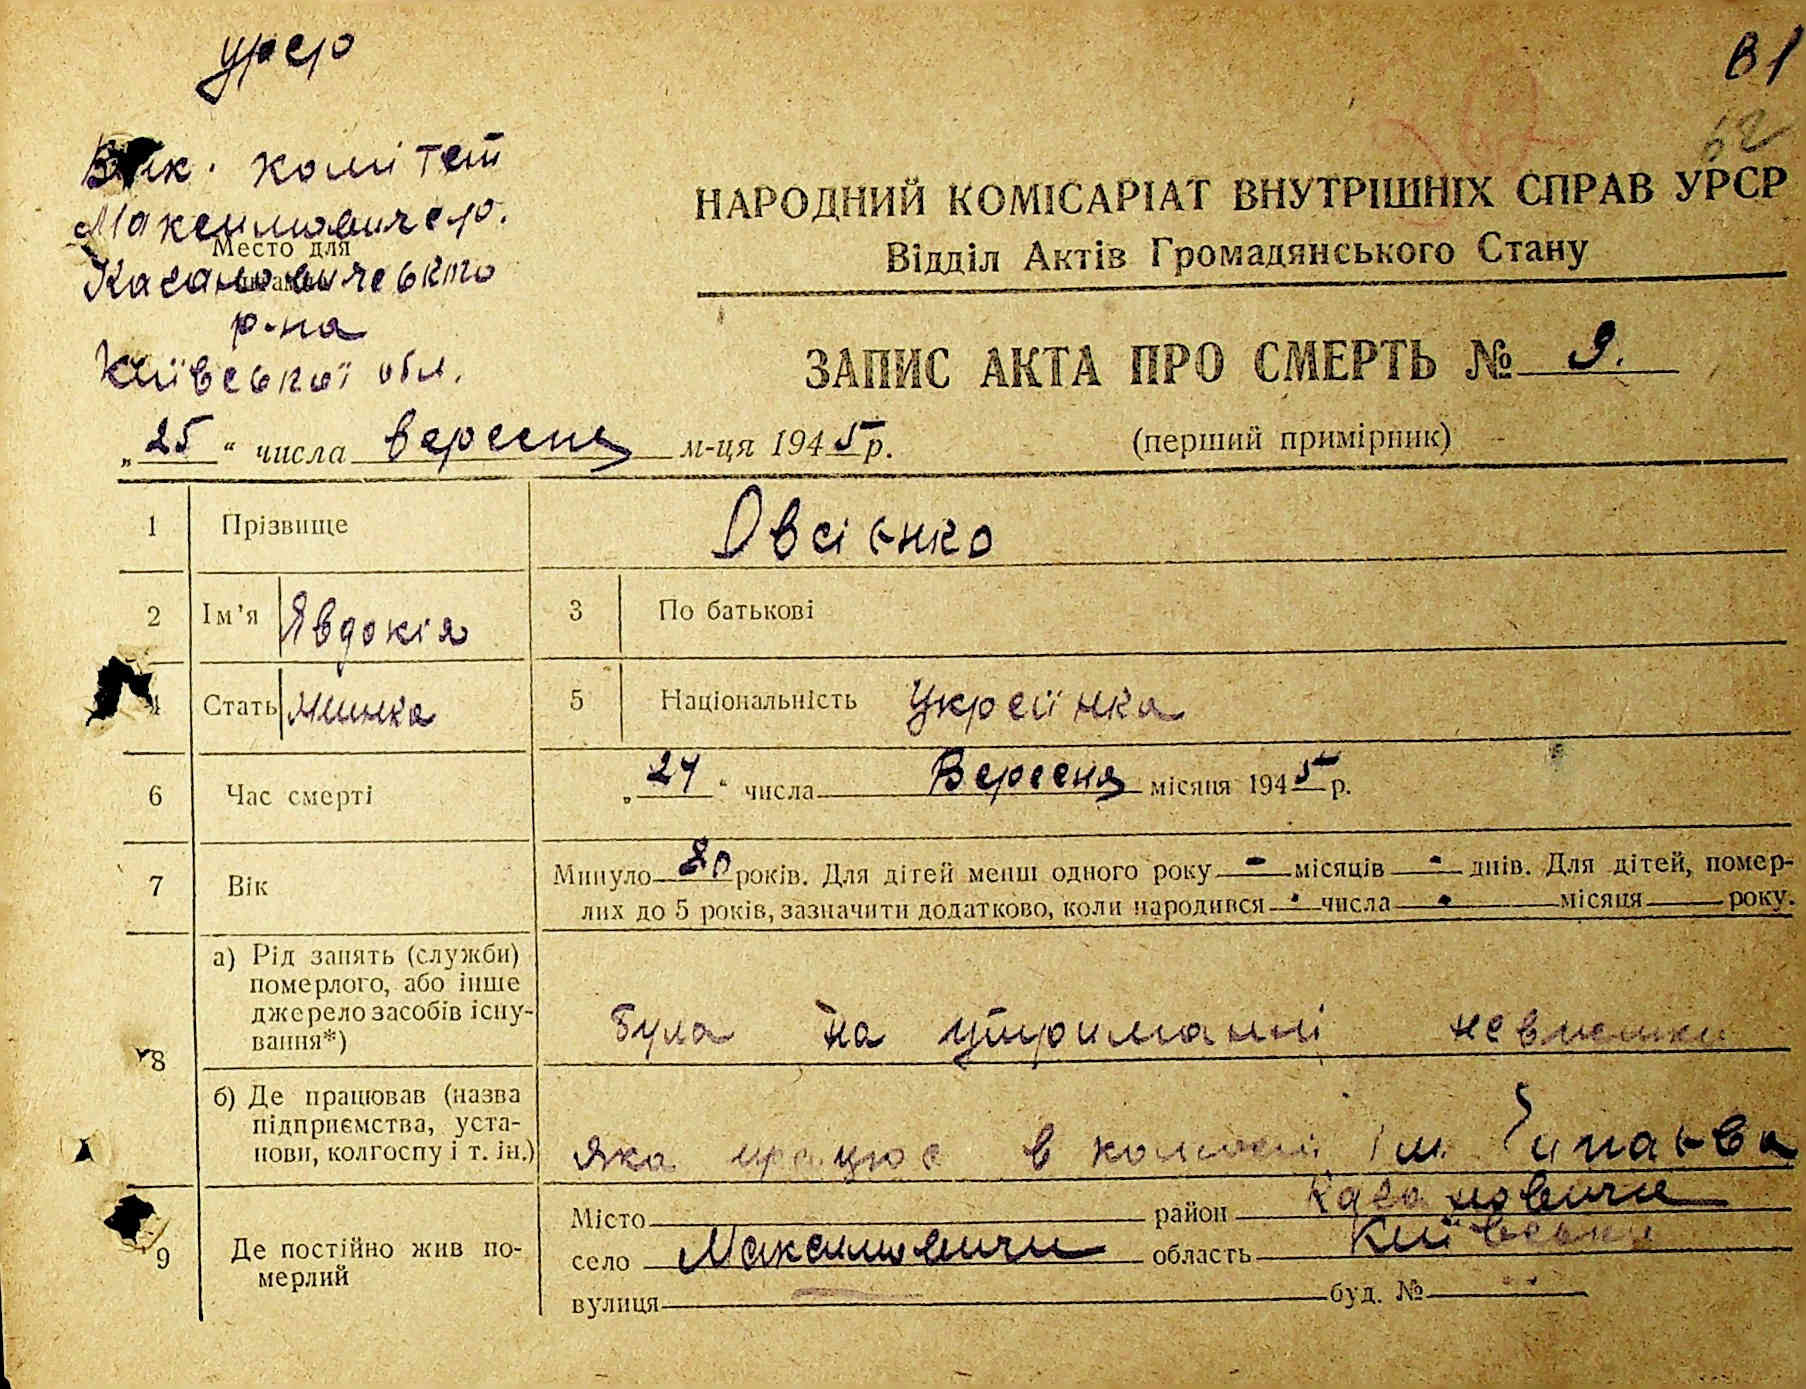 урср
Вик. комітет
Максимовичеср.
Место для
Кагановичевського
р-на
Київської обл.
81
62
НАРОДНИЙ КОМІСАРІАТ ВНУТРІШНІХ СПРАВ УРСР
Відділ Актів Громадянського Стану
ЗАПИС АКТА ПРО СМЕРТЬ № 9.
„25“ числа вересня м-ця 1945р.
(перший примірник)
1 Прізвище Овсієнко
2 Ім'я Явдокія 3 По батькові
4 Стать жинка 5 Національність Українка
6 Час смерті „24“ числа Вересня місяця 1945 р.
7 Вік Минуло 80 років. Для дітей менш одного року - місяців - днів. Для дітей, помер-
лих до 5 років, зазначити додатково, коли народився - числа - місяця року.
8 а) Рід занять (служби)
померлого, або інше
джерело засобів існу-
вання*)
була на утриманні невистки
б) Де працював (назва
підприємства, уста-
нови, колгоспу і т. ін.)
яка працює в колгоспі ім. Чапаєва
9 Де постійно жив по-
мерлий
Місто район Кагановичи
село Максимовичи область Київська
вулиця буд. №